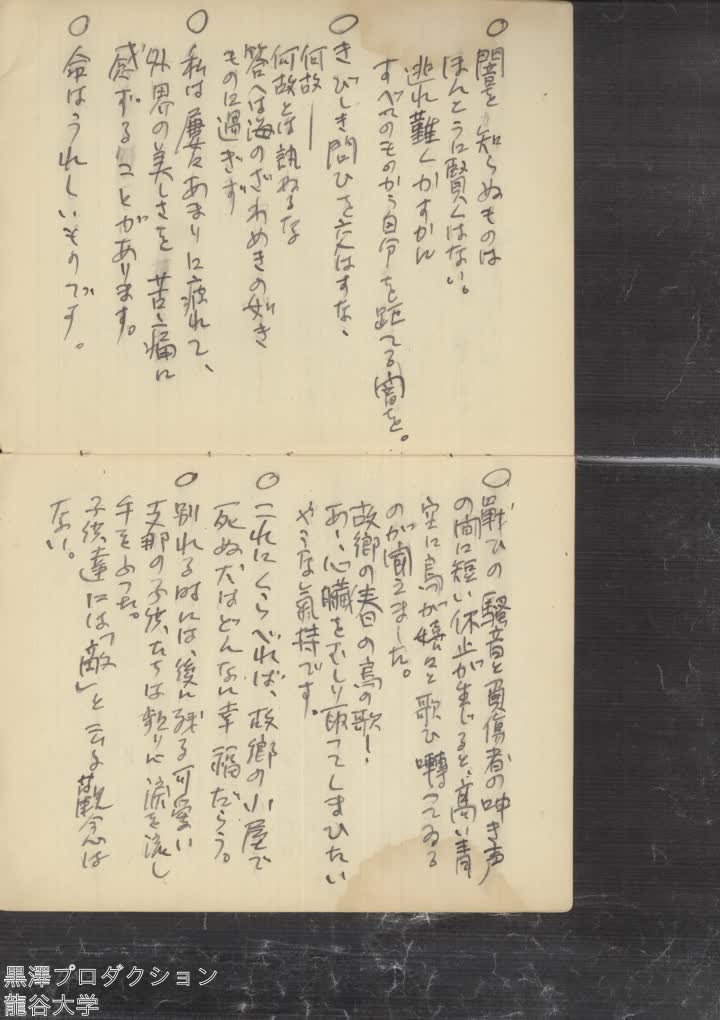 ○闇を知らぬものは
ほんとうに賢くはない。
逃れ難くかすかに
すべてのものから自分を距てる闇を。
○きびしき問ひを交はすな、
何故――
何故とは訊ねるな
答へは海のざわめきの如き
ものに過ぎず
○私は屢々あまりに疲れて、
外界の美しさを苦痛に
感ずることがあります。
○命はうれしいものです。
○戰ひの騒音と負傷者の呻き声
の間に短い休止が生じると、高い青
空に鳥が嬉々と歌ひ囀ってゐる
のが聞えました。
故郷の春の日の鳥の歌！
あゝ心臓をむしり取ってしまひたい
やうな氣持です。
○これにくらべれば、故郷の小屋で
死ぬ犬はどんなに幸福だらう。
○別れる時には、後に残る可愛い
支那の子供たちは頻りに涙を流し
手をふった。
子供達には「敵」と云ふ観念は
ない。
黒澤プロダクション
龍谷大学